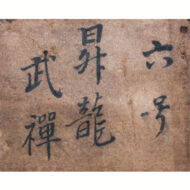 六号
昇龍
武禪